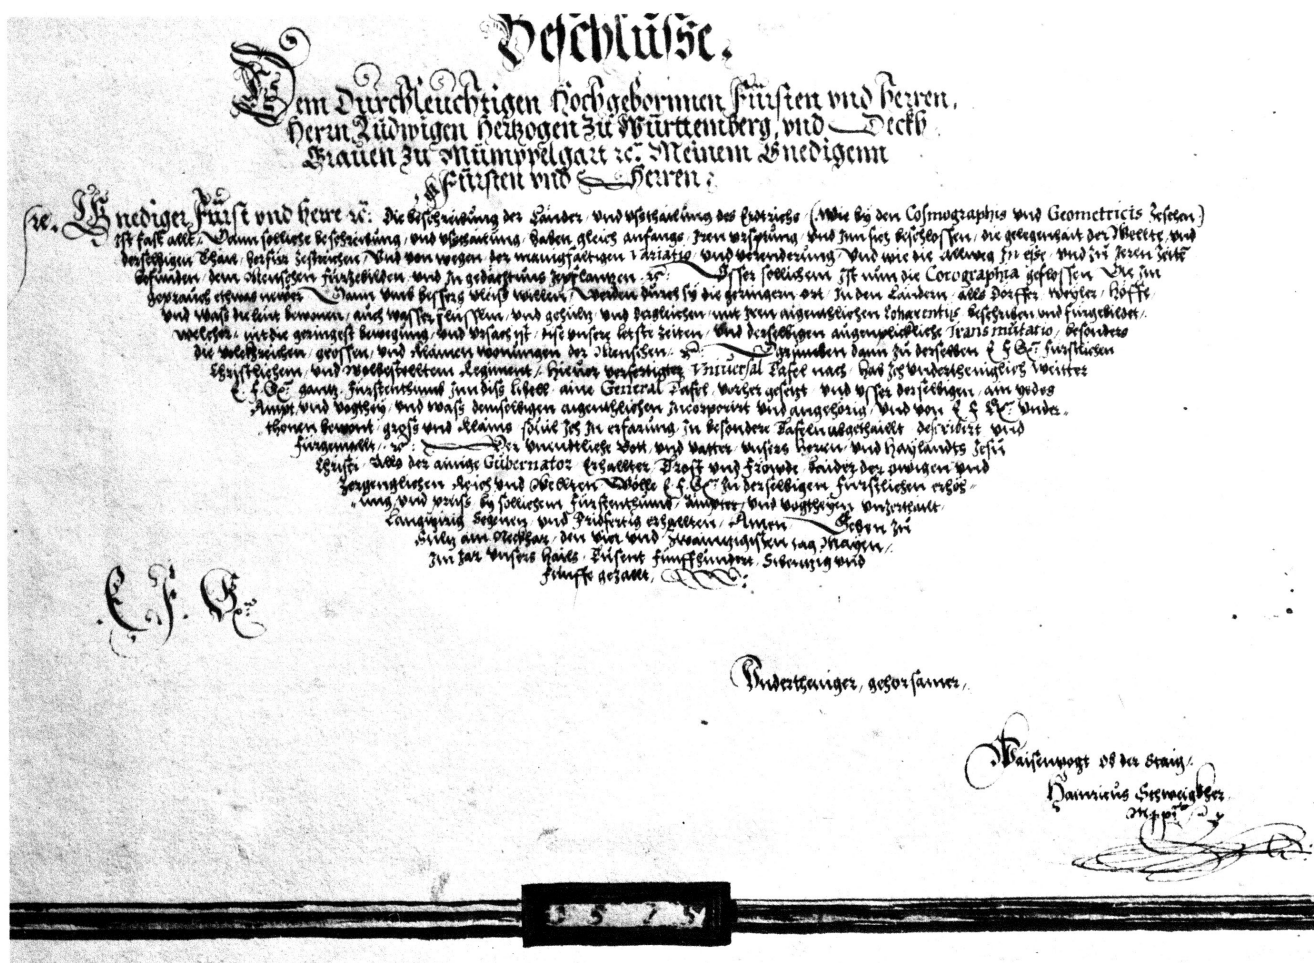 Beschlusse.
Dem Durchleuchtigen Hochgebornnen Fürsten vnd Herren,
Herrn Ludwigen Hertzogen zu Württemberg, vnd Deckh
Grauen zu Mümppelgart ꝛc. Meinem Gnedigenn
Fürsten vnd Herren.
ꝛc. Gnediger Fürst vnd herre ꝛc: Die beschreibung der Länder, vnd vßthailung des Erdtrichs (Wie by den Cosmographis vnd Geometricis zesehen)
Ist fast allt, Dann solliche beschreibung, vnd vßthailung, haben gleich anfangs, Iren vrsprung, vnd Inn sich beschlossen, die gelegenhait der Wellte, vnd
derselbigen Thaat, herfür zestreichen, Vnd von wegen der manigfaltigen Variatio, vnd verenderung, Vnd wie die Allweg In esse, vnd zu Jeren Zeitt
befunden, dem Menschen fürzebilden, vnd In gedächtnus zepflantzen. ꝛc: Vsser sollichem Ist nun die Corographia geflossen Die Im
geprauch etwas newer Dann vmb bessers vleiß willen, Werden durch sy die geringern ort, In den Ländern, allß Dörffer, Weyler, Höffe,
vnd waß die leut bewonen, auch wasser flüsslin, vnd gehültz, vnd dergleichen, mit Iren aigenthlichen beschriben vnd fürgebildet,
Welcher, nit die geringest bewegung, vnd vrsach ist, dise vnsere letste Zeiten, vnd derselbigen augenplickliche Transmutatio, besonders
die volckreichen, grossen, vnd klainen wonungen der Menschen. ꝛc: dann zu derselben E. F. G. Fürstlichen
Christlichem, vnd Wolbestelltem Regiment, hieuor verfertigter Vniuersal Tafel nach, hab Ich vnderthenigklich Weitter
E. F. G. gantz Fürstenthumb Inn diß libell, aine General Tafel, vorher gesetzt, vnd vsser derselbigen, ain yedes
Ampt, vnd Vogthey, vnd wass demselbigen aigenthlichen Incorporirt vnd angehörig, vnd von E. F. G. Vnder-
thonen bewont, gross vnd klains souil Ich In erfarung, In besondere Tafeln abgethaillt describirt vnd
fürgemallt, ꝛc: Der vnendtliche Gott, vnd vatter, vnsers Herren, vnd Haylandts Jesu
Christi, Allß der ainige Gubernator, Erhallter, Trost vnd Fröwde, baider der ewigen vnd
Zergenglichen Reich vnd Wellten Wölle E. F. G. In derselbigen Fürstlichen erhöh-
ung, vnd preiß, by sollichem Fürstenthumb, Ämpter, vnd Vogtheyen vnzerthailt,
Langwirig Segnen, vnd Fridfertig erhallten, Amen. Geben zu
Sultz am Neckhar, den vier vnd zwaintzigisten tag Mayen,
Im Jar vnsers Hails, Tusent fünffhundert, Sibentzig vnd
Fünffe gezallt,
E. F. G.
Vnderthöniger, gehorsamer,
Waisenvogt ob der Staig,
Hainricus Schweigkher
Mppr̄ia
1 5 7 5